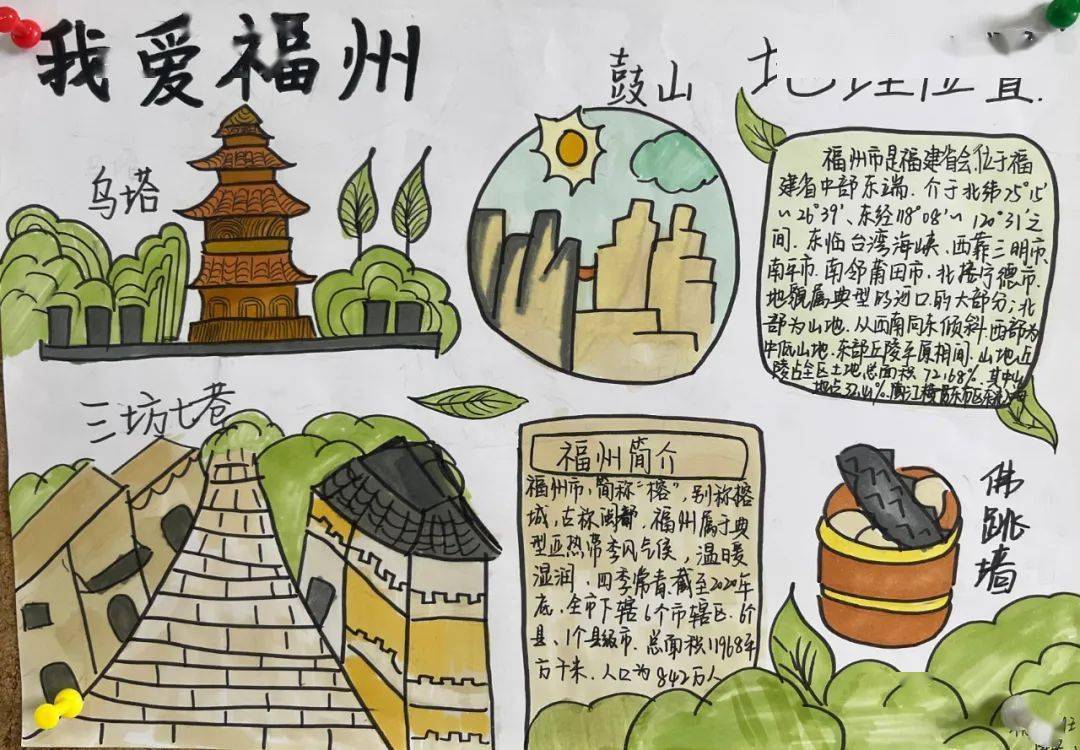 我爱福州
乌塔
鼓山
地理位置
福州市是福建省会,位于福
建省中部东端.介于北纬25°15′
~26°39′、东经118°08′~120°31′之
间.东临台湾海峡、西靠三明市、
南平市、南邻莆田市、北接宁德市.
地貌属典型的河口的大部分;北
部为山地.从西南向东倾斜.西部为
中低山地.东部丘陵平原相间.山地丘
陵占全区土地总面积72.68%.其中山
地占32.41%.
三坊七巷
福州简介
福州市,简称“榕”,别称榕
城,古称闽都.福州属于典
型亚热带季风气候,温暖
湿润.四季常春.截至2020年
底.全市下辖6个市辖区.6个
县、1个县级市.总面积11968平
方千米.人口为842万人
佛跳墙